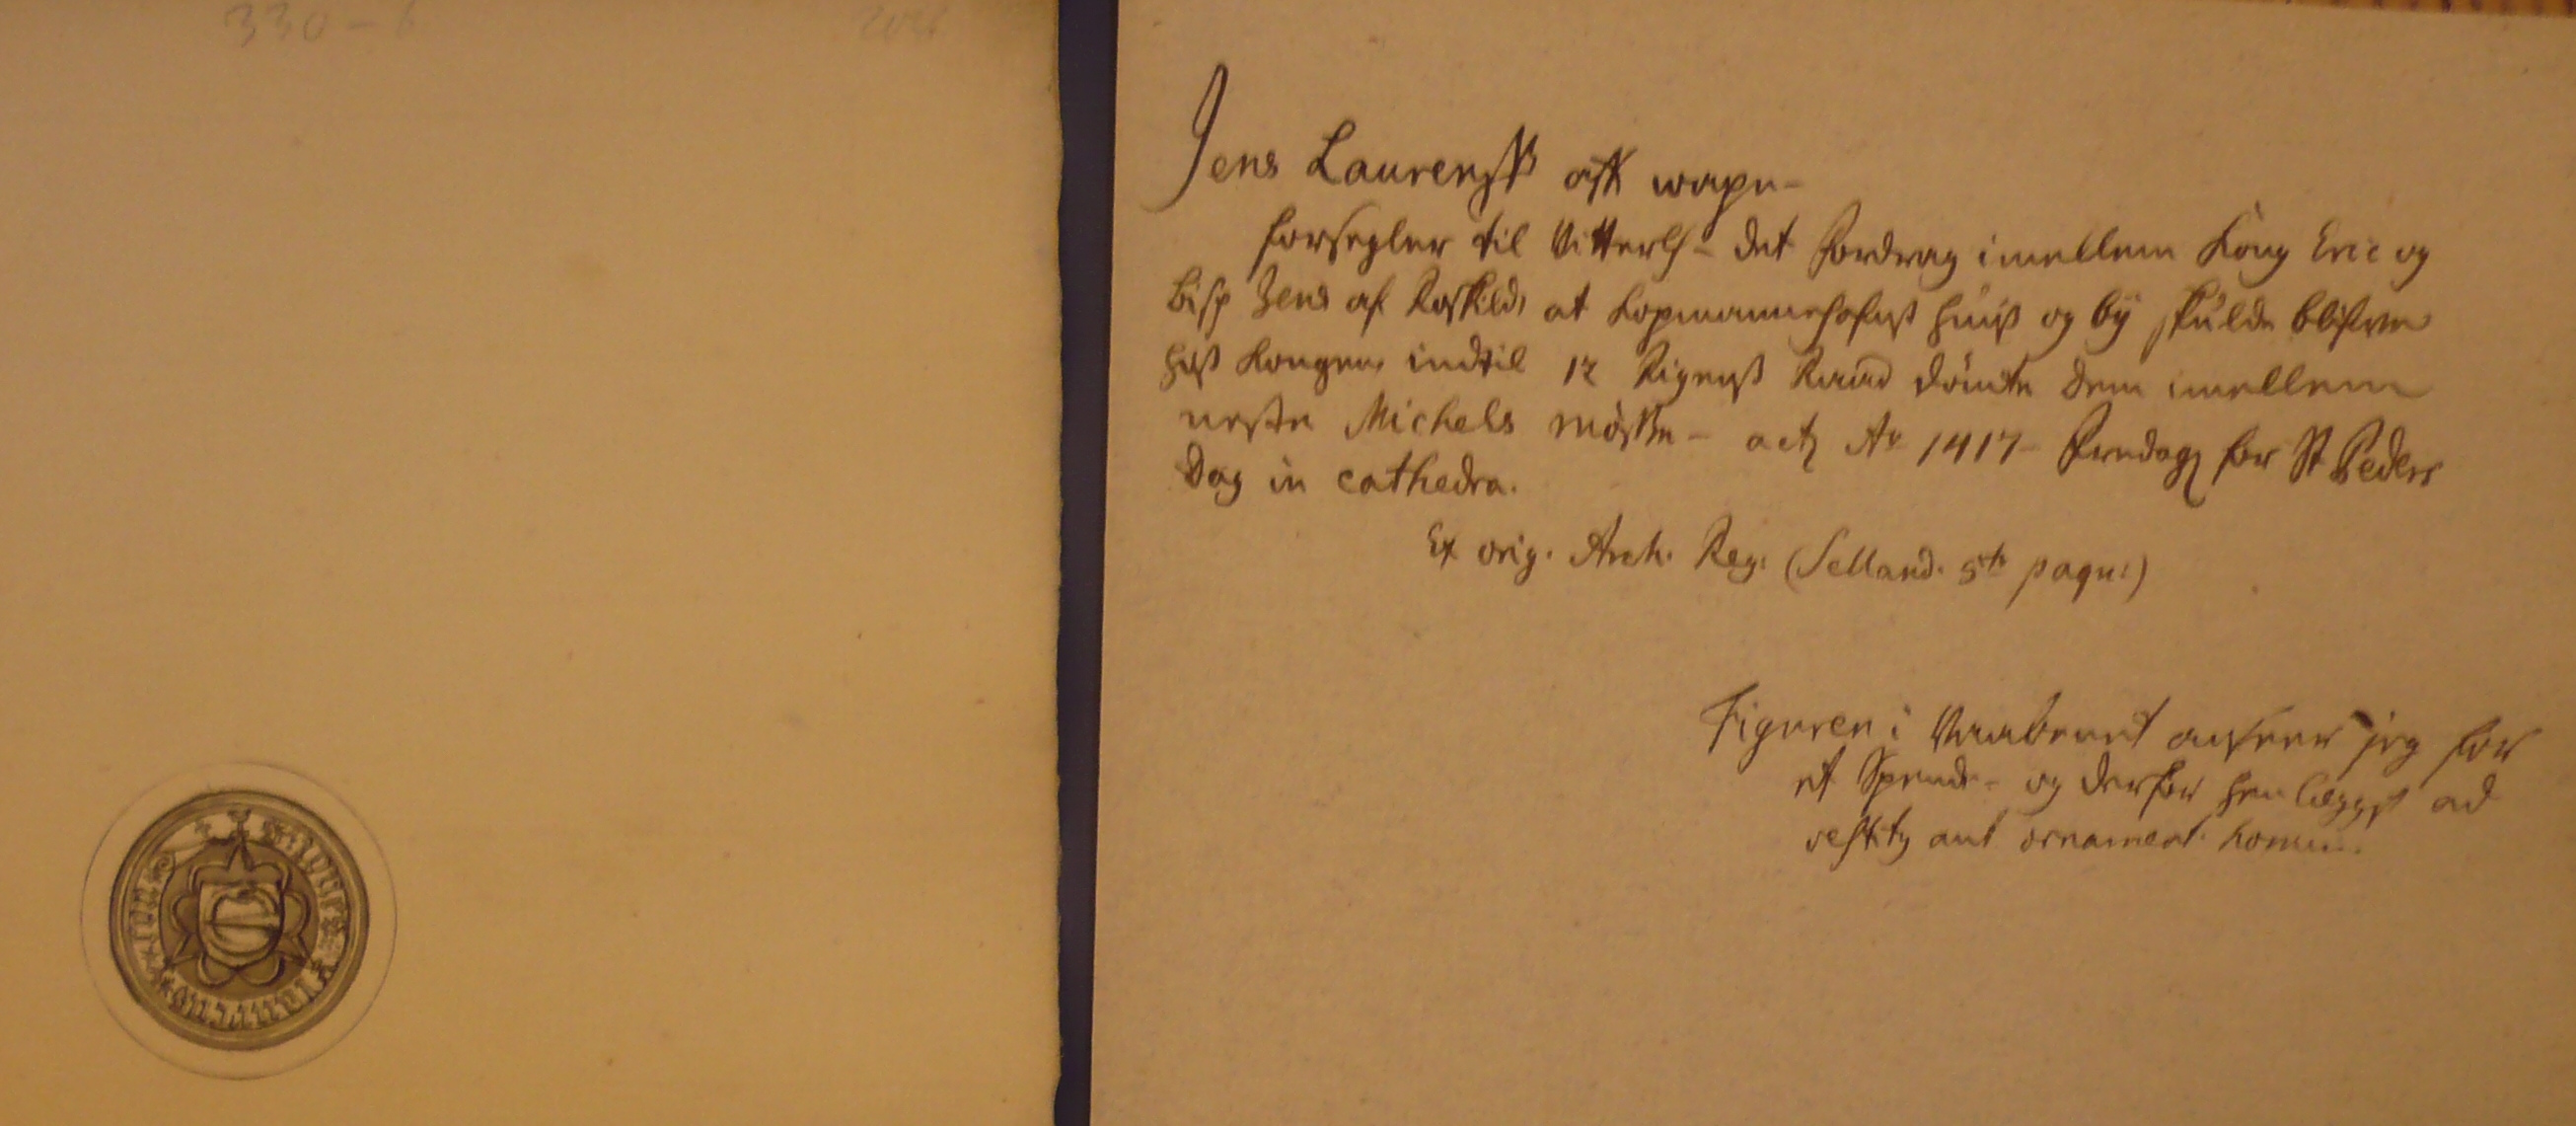 330-6
Jens Laurenss aff wapn-
forsegler til Vitterl- det Fordrag imellem Kong Eric og
Bisp Jens af Roskilde at Kopmannehafns Huus og by skulde blifve
hoss Kongen indtil 12 Rigens Raad dömte dem imellem
neste Michels mösse - act Ao 1417 - Fredag for St Peders
Dag in cathedra.
Ex orig. Arch. Reg. (Selland. 5te paqv:)
Figuren i Vaabenet anseer jeg for
et Spende - og derfor henlegges ad
vestit aut ornament. homin.